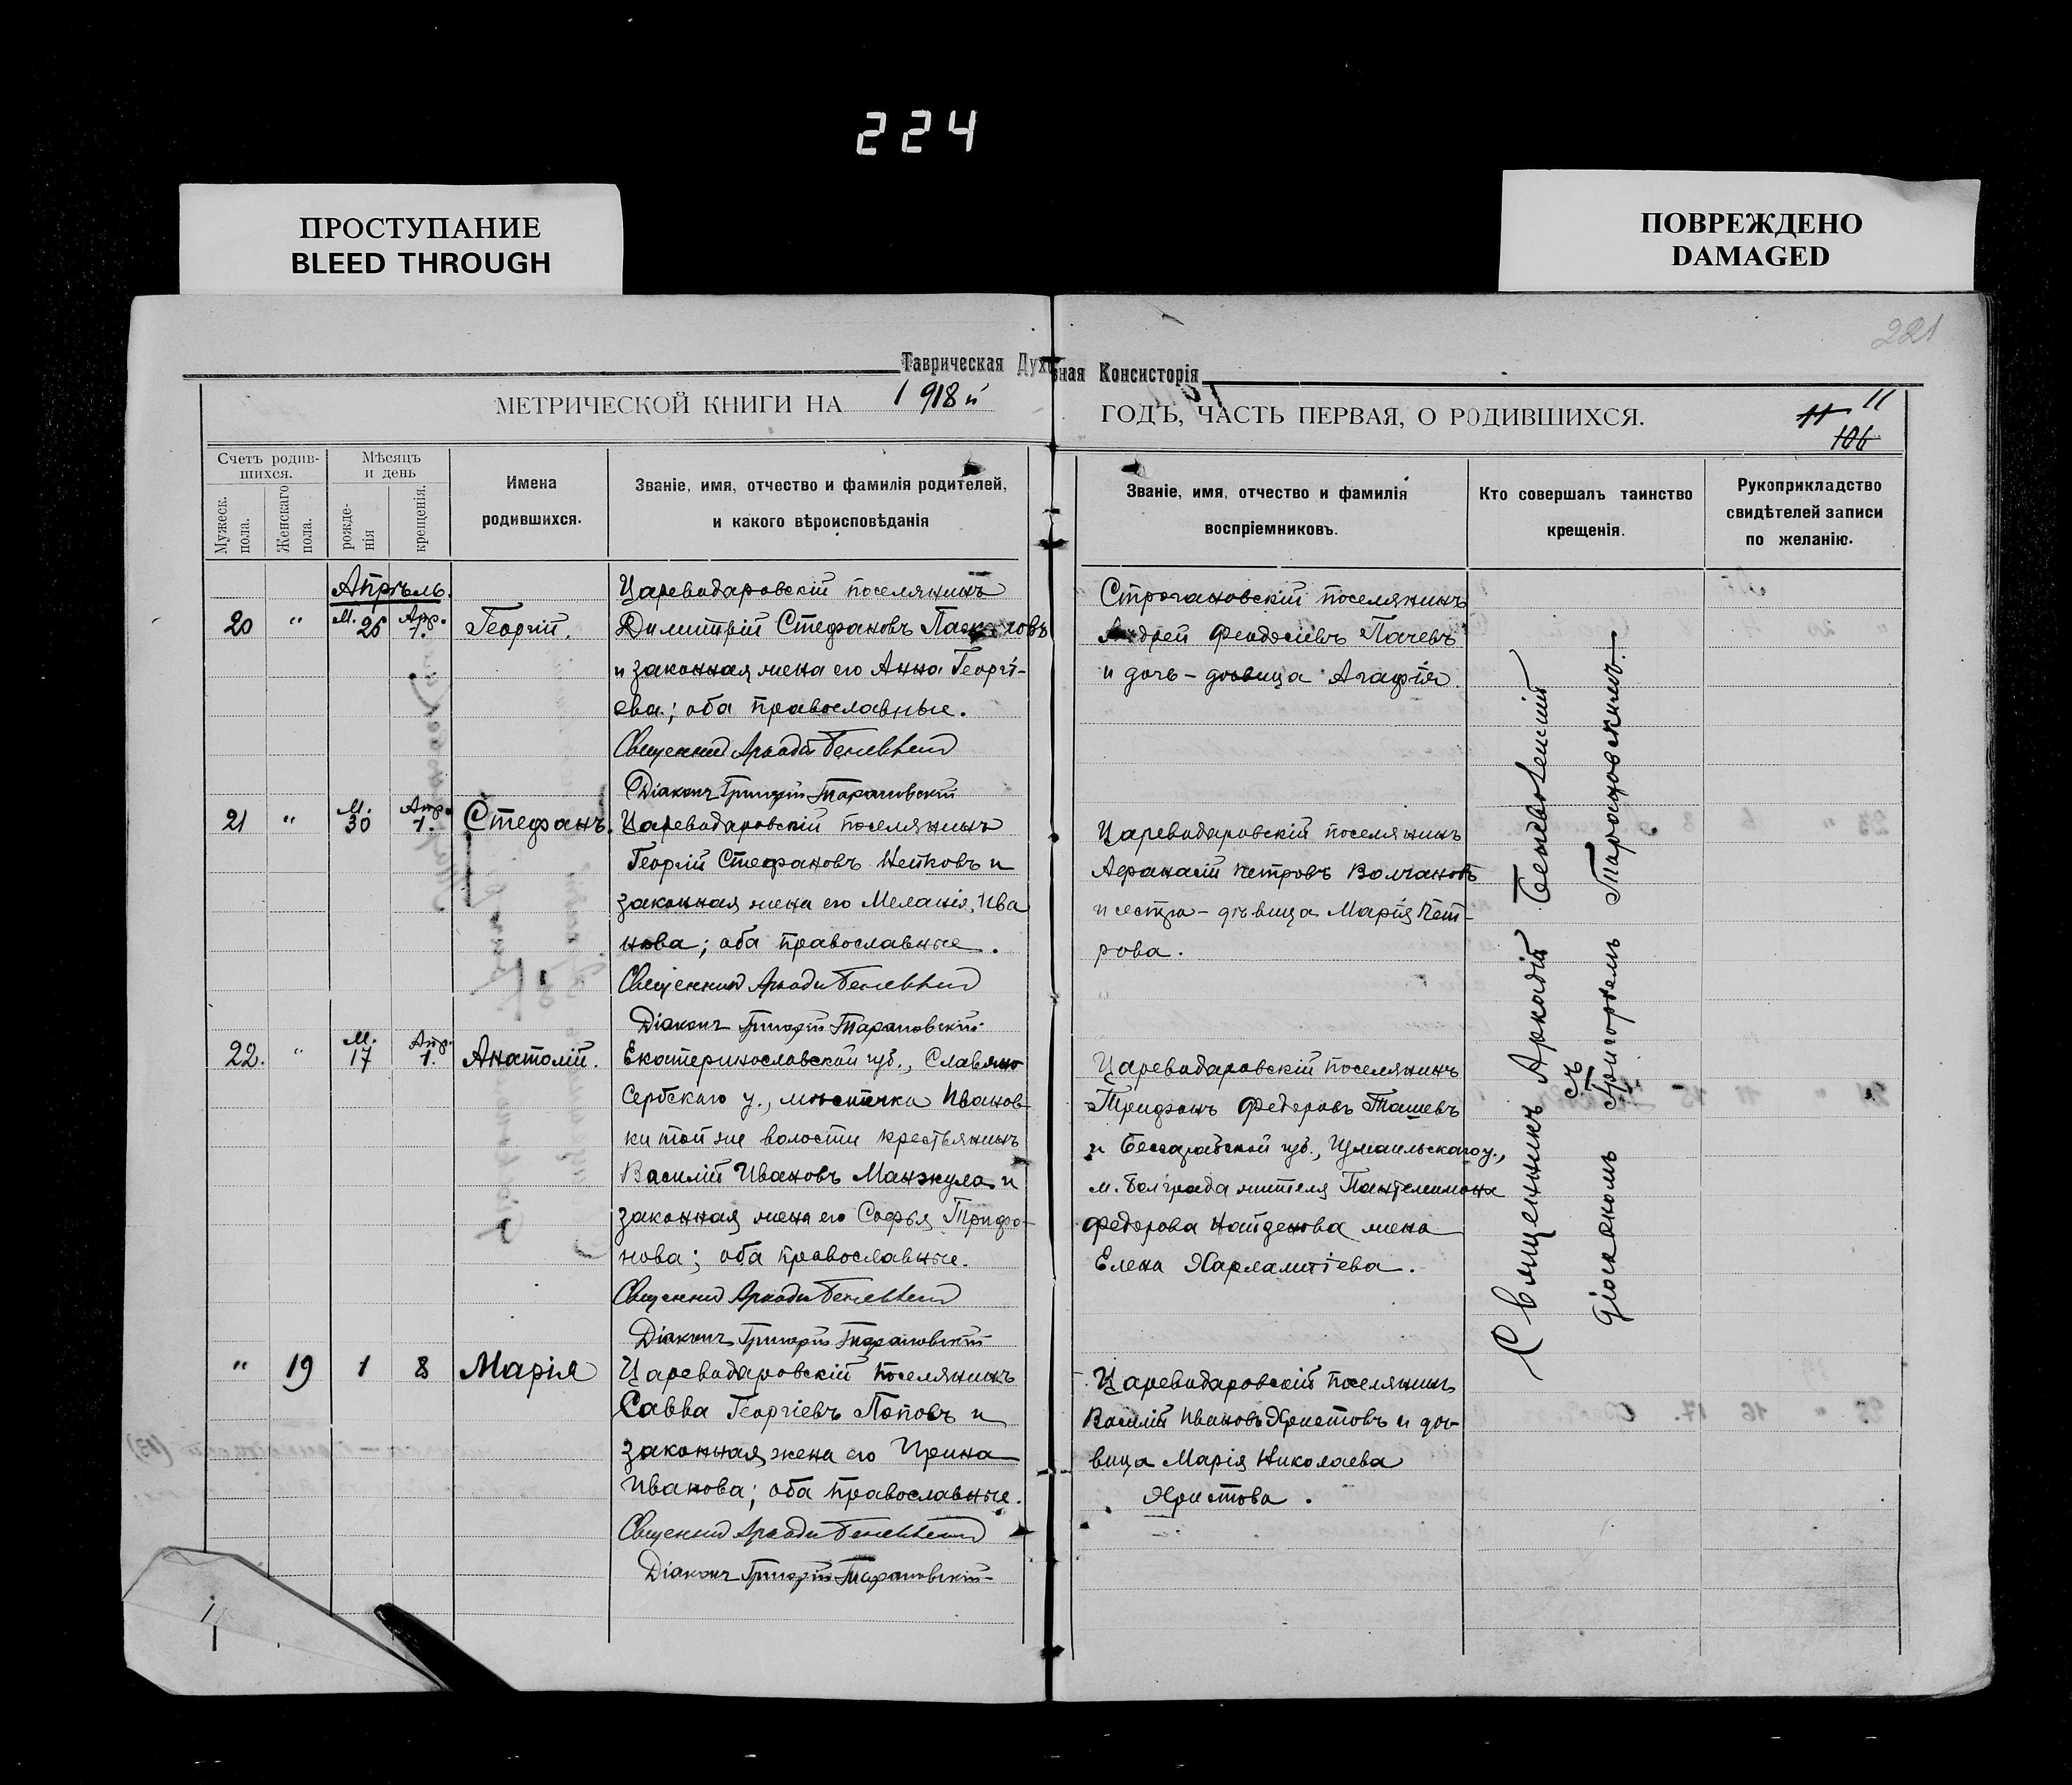 224
ПРОСТУПАНИЕ
BLEED THROUGH
ПОВРЕЖДЕНО
DAMAGED
221
Таврическая Духовная Консисторія
МЕТРИЧЕСКОЙ КНИГИ НА 1918й ГОДЪ, ЧАСТЬ ПЕРВАЯ, О РОДИВШИХСЯ.
11 11
106
Счетъ родив-
шихся.
Мужеск. пола.
Женскаго пола.
Мѣсяцъ
и день
рожде-
нія
крещенія.
Имена
родившихся.
Званіе, имя, отчество и фамилія родителей,
и какого вѣроисповѣданія
Званіе, имя, отчество и фамилія
воспріемниковъ.
Кто совершалъ таинство
крещенія.
Рукоприкладство
свидѣтелей записи
по желанію.
Апрѣль.
20 " М. 26 Апр. 1. Георгій.
Цареводаровскій поселянинъ
Димитрій Стефановъ
и законная жена его Анна Георгі-
ева; оба православные.
Священник Аркадій
Діаконъ Григорій Тарановскій
Строгановскій поселянинъ
Андрей Феодосіевъ Пачевъ
и дочь - дѣвица Агафія.
21 " М. 30 Апр. 1. Стефанъ.
Цареводаровскій поселянинъ
Георгій Стефановъ Нейковъ и
законная жена его Меланія Ива
нова; оба православные.
Священник Аркадій
Діаконъ Григорій Тарановскій
Цареводаровскій поселянинъ
Афанасій Петровъ Волчановъ
и сестра - дѣвица Марія Пет-
рова.
22. " М. 17 Апр. 1. Анатолій.
Екатеринославской губ., Славяно
Сербскаго у., мѣстечка Иванов-
ки той же волости крестьянинъ
Василій Ивановъ Манжула и
законная жена его Софья Трифо-
нова; оба православные.
Священник Аркадій
Діаконъ Григорій Тарановскій
Цареводаровскій поселянинъ
Трифонъ Федоровъ Ташевъ
и Бессарабской губ., Измаильскаго у.,
м. Болграда жителя Пантелеимона
Федорова Найденова жена
Елена Харлампіева.
" 19 1 8 Марія
Цареводаровскій поселянинъ
Савва Георгіевъ Поповъ и
законная жена его Ирина
Иванова; оба православные.
Священник Аркадій
Діаконъ Григорій Тарановскій
Цареводаровскій поселянинъ
Василій Ивановъ Христовъ и дѣ-
вица Марія Николаева
Христова.
Священникъ Аркадій
съ
діакономъ Григоріемъ Тарановскимъ.